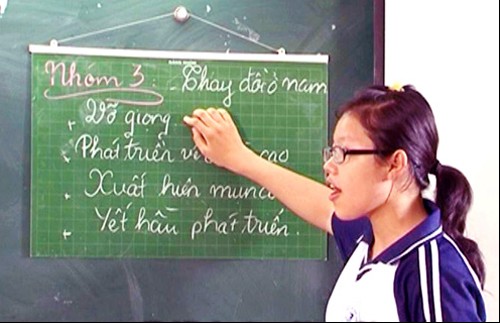 Nhóm 3: Thay đổi ở nam
+ Vỡ giọng
+ Phát triển cao
+ Xuất hiện mụn
+ Yết hầu phát triển.